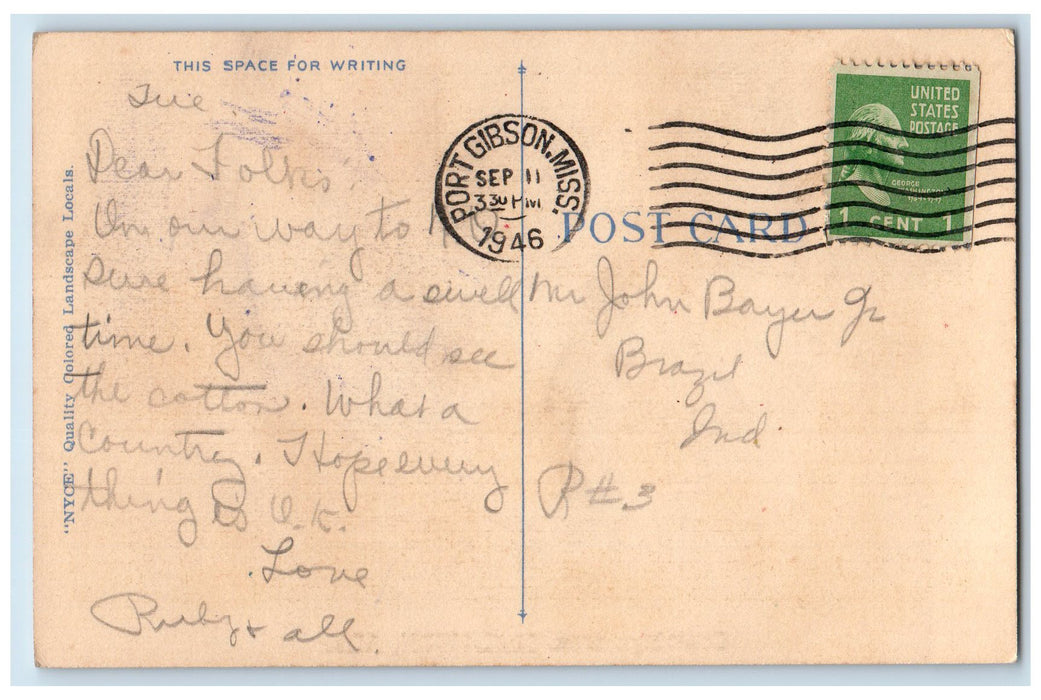 THIS SPACE FOR WRITING
Tue
Dear Folks
On our way to
sure having a swell
time. You should see
the cotton. What a
country. Hope every
thing is O.K.
Love
Ruby & all.
"NYCE" Quality Colored Landscape Locals.
PORT GIBSON, MISS.
SEP 11
3 30 PM
1946
POST CARD
UNITED
STATES
POSTAGE
GEORGE
WASHINGTON
1 CENT 1
Mr John Bayer Jr
Brazil
Ind
R#3